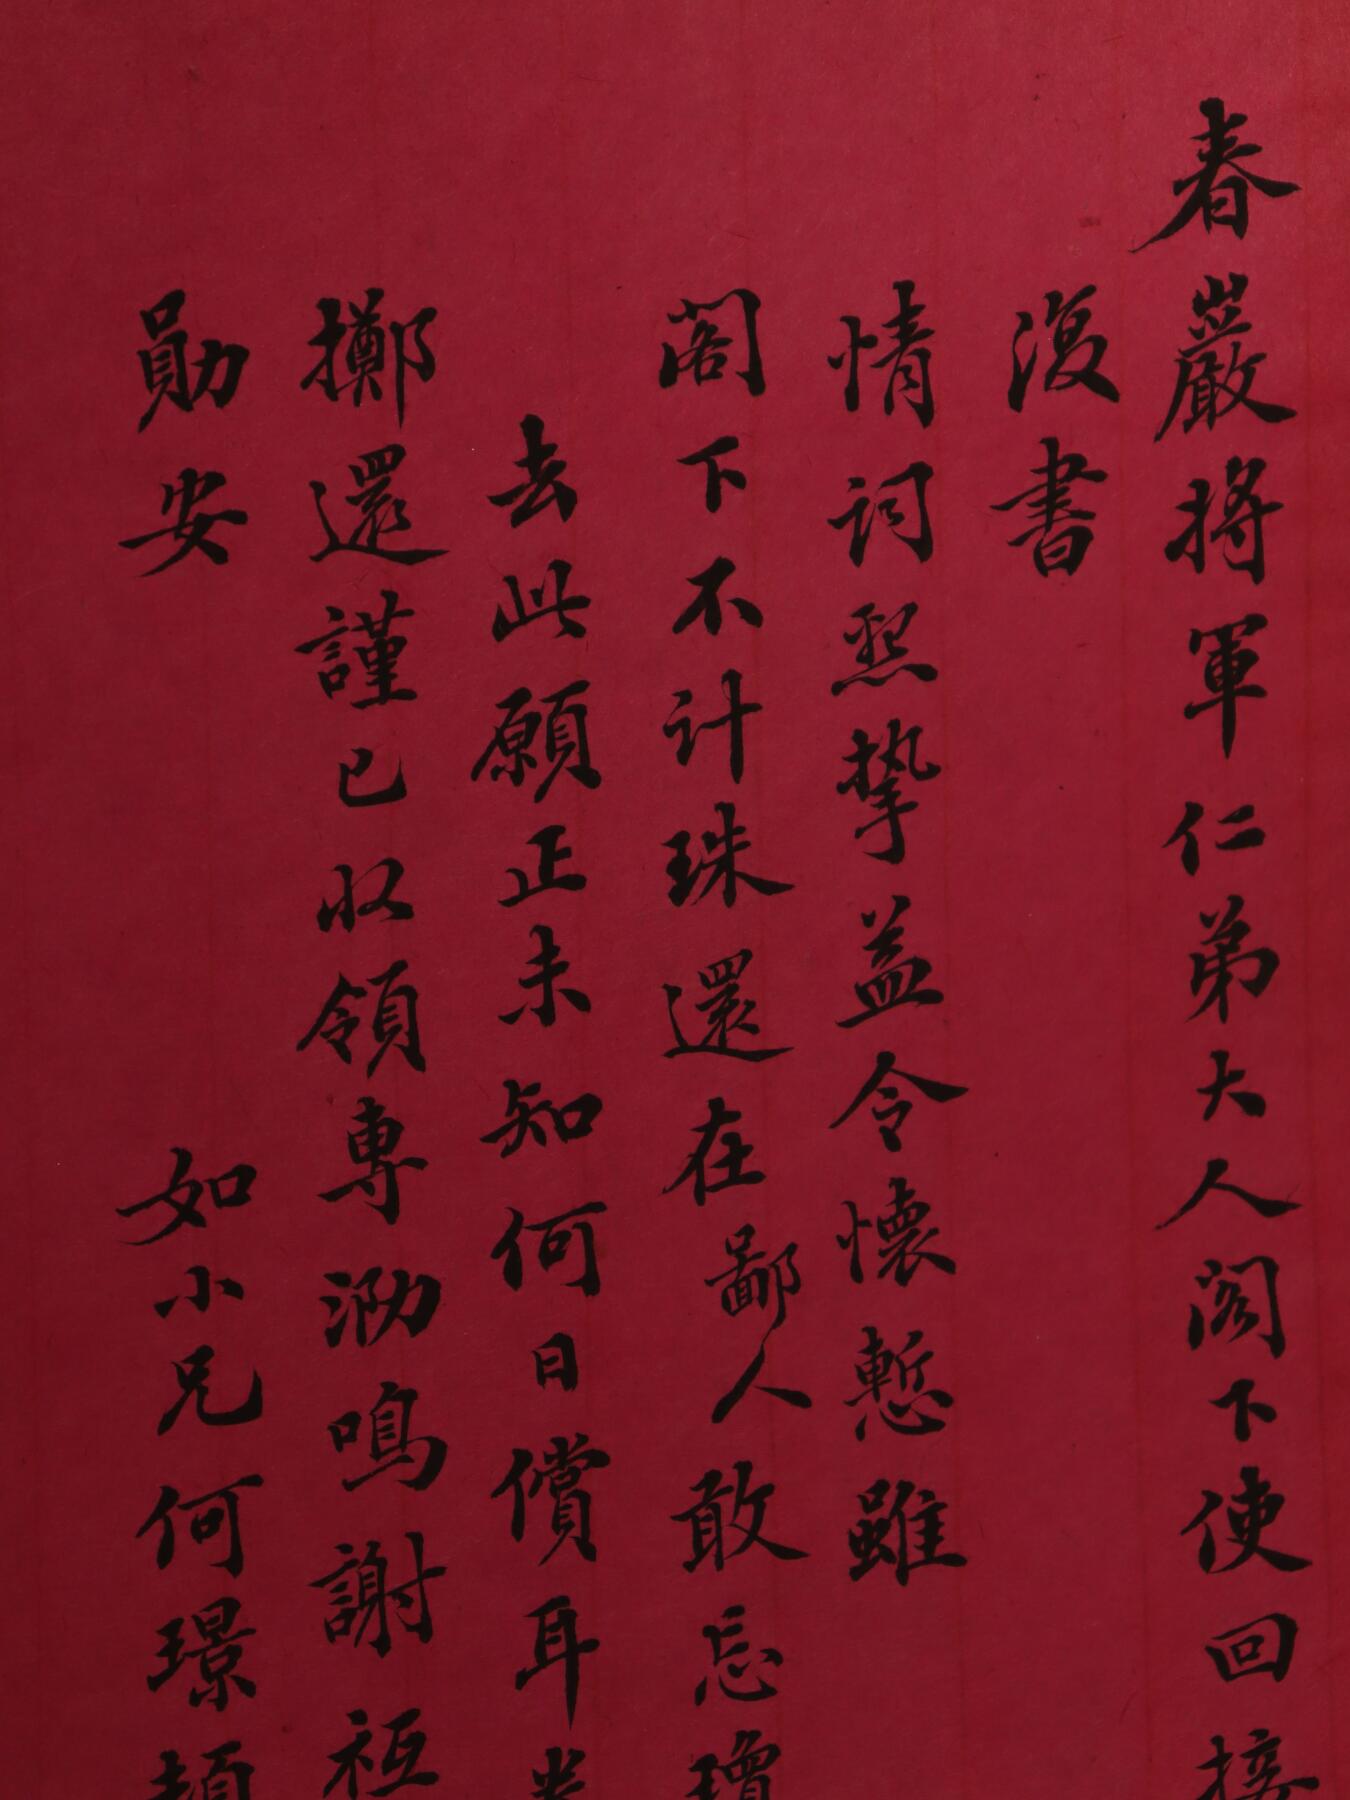 春巖將軍仁弟大人閣下使回接
復書
情詞熙摯益令懷慙雖
閣下不計珠還在鄙人敢忘瓊
去此願正未知何日償耳
擲還謹已收領專泐鳴謝祗
勛安
如小兄何璟頓